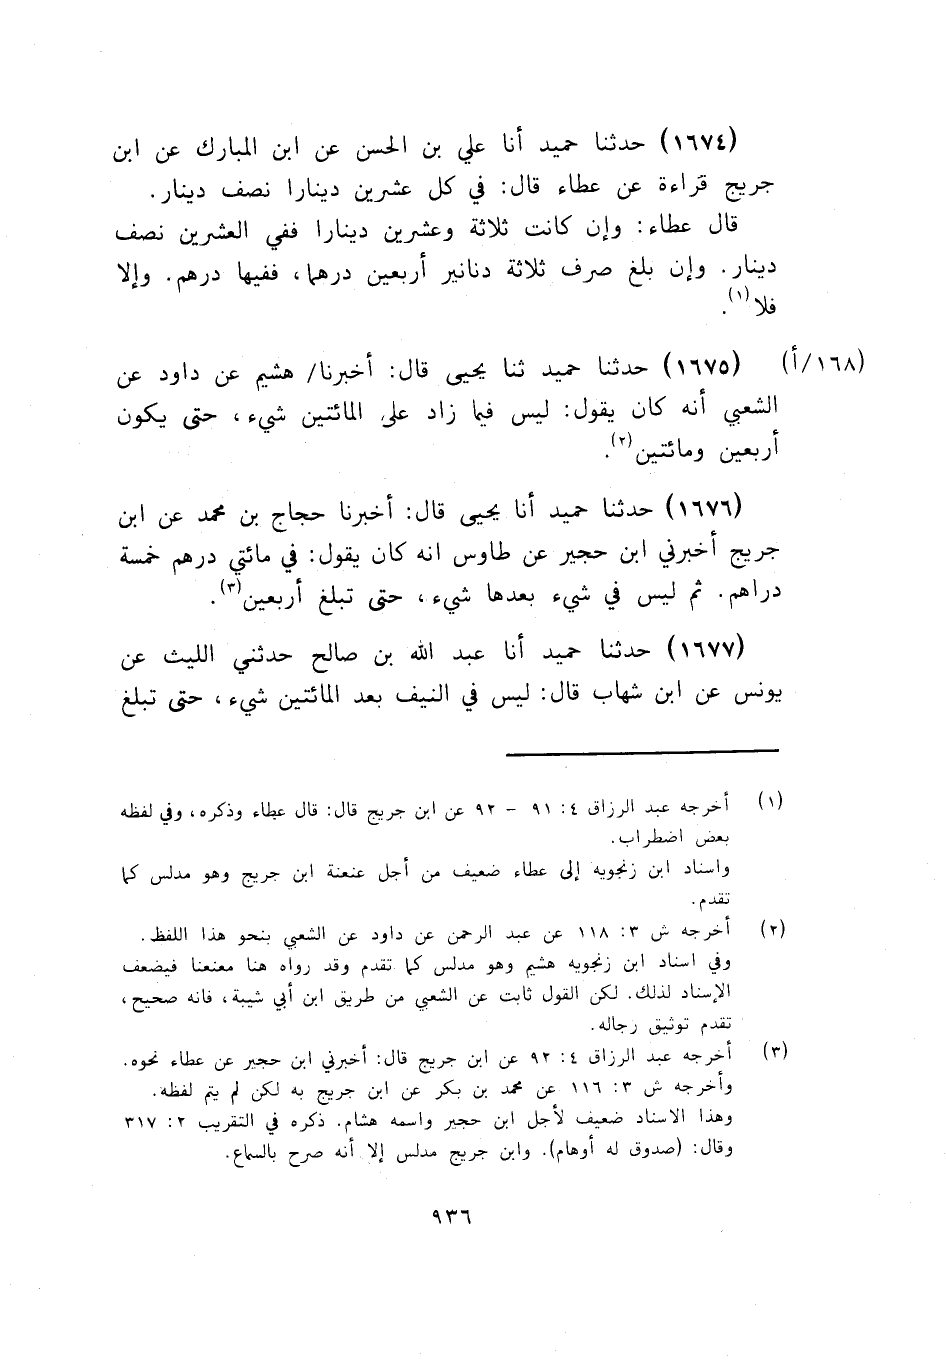 (١٦٧٤) حدثنا حميد أنا علي بن الحسن عن ابن المبارك عن ابن
جريج قراءة عن عطاء قال: في كل عشرين دينارا نصف دينار.
قال عطاء: وإن كانت ثلاثة وعشرين دينارا ففي العشرين نصف
دينار. وإن بلغ صرف ثلاثة دنانير أربعين درهما، ففيها درهم. وإلا
فلا(١).
(١٦٨/أ) (١٦٧٥) حدثنا حميد ثنا يحيى قال: أخبرنا/ هشيم عن داود عن
الشعبي أنه كان يقول: ليس فيما زاد على المائتين شيء، حتى يكون
أربعين ومائتين(٢).
(١٦٧٦) حدثنا حميد أنا يحيى قال: أخبرنا حجاج بن محمد عن ابن
جريج أخبرني ابن حجير عن طاوس انه كان يقول: في مائتي درهم خمسة
دراهم. ثم ليس في شيء بعدها شيء، حتى تبلغ أربعين(٣).
(١٦٧٧) حدثنا حميد أنا عبد الله بن صالح حدثني الليث عن
يونس عن ابن شهاب قال: ليس في النيف بعد المائتين شيء، حتى تبلغ
(١) أخرجه عبد الرزاق ٤: ٩١ - ٩٢ عن ابن جريج قال: قال عطاء وذكره، وفي لفظه
بعض اضطراب.
واسناد ابن زنجويه إلى عطاء ضعيف من أجل عنعنة ابن جريج وهو مدلس كما
تقدم.
(٢) أخرجه ش ٣: ١١٨ عن عبد الرحمن عن داود عن الشعبي بنحو هذا اللفظ.
وفي اسناد ابن زنجويه هشيم وهو مدلس كما تقدم وقد رواه هنا معنعنا فيضعف
الإسناد لذلك. لكن القول ثابت عن الشعبي من طريق ابن أبي شيبة، فانه صحيح،
تقدم توثيق رجاله.
(٣) أخرجه عبد الرزاق ٤: ٩٢ عن ابن جريج قال: أخبرني ابن حجير عن عطاء نحوه.
وأخرجه ش ٣: ١١٦ عن محمد بن بكر عن ابن جريج به لكن لم يتم لفظه.
وهذا الاسناد ضعيف لأجل ابن حجير واسمه هشام. ذكره في التقريب ٢: ٣١٧
وقال: (صدوق له أوهام). وابن جريج مدلس إلا أنه صرح بالسماع.
٩٣٦